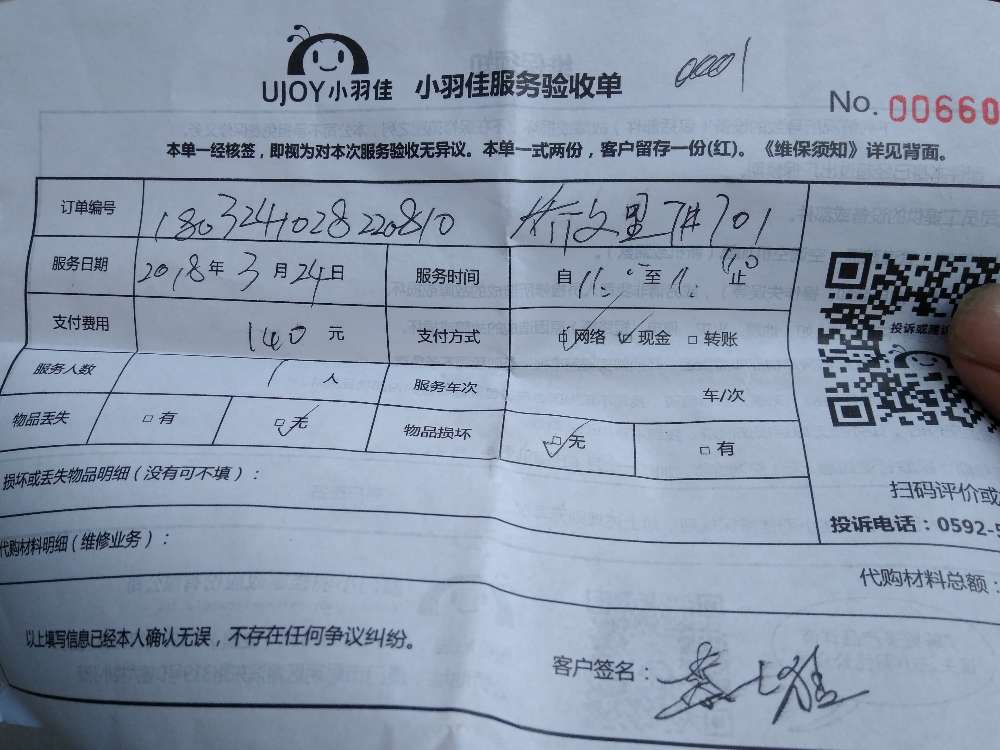 UJOY小羽佳 小羽佳服务验收单 0001
No. 00660
本单一经核签，即视为对本次服务验收无异议。本单一式两份，客户留存一份(红)。《维保须知》详见背面。
订单编号 1803241028220810 里 701
服务日期 2018年3月24日 服务时间 自11:00至11:40止
支付费用 140元 支付方式 网络 现金 转账
服务人数 1人 服务车次 车/次
物品丢失 有 无 物品损坏 无 有
投诉或建议
损坏或丢失物品明细（没有可不填）：
扫码评价或
投诉电话：0592-5
代购材料明细（维修业务）：
代购材料总额：
以上填写信息已经本人确认无误，不存在任何争议纠纷。
客户签名：